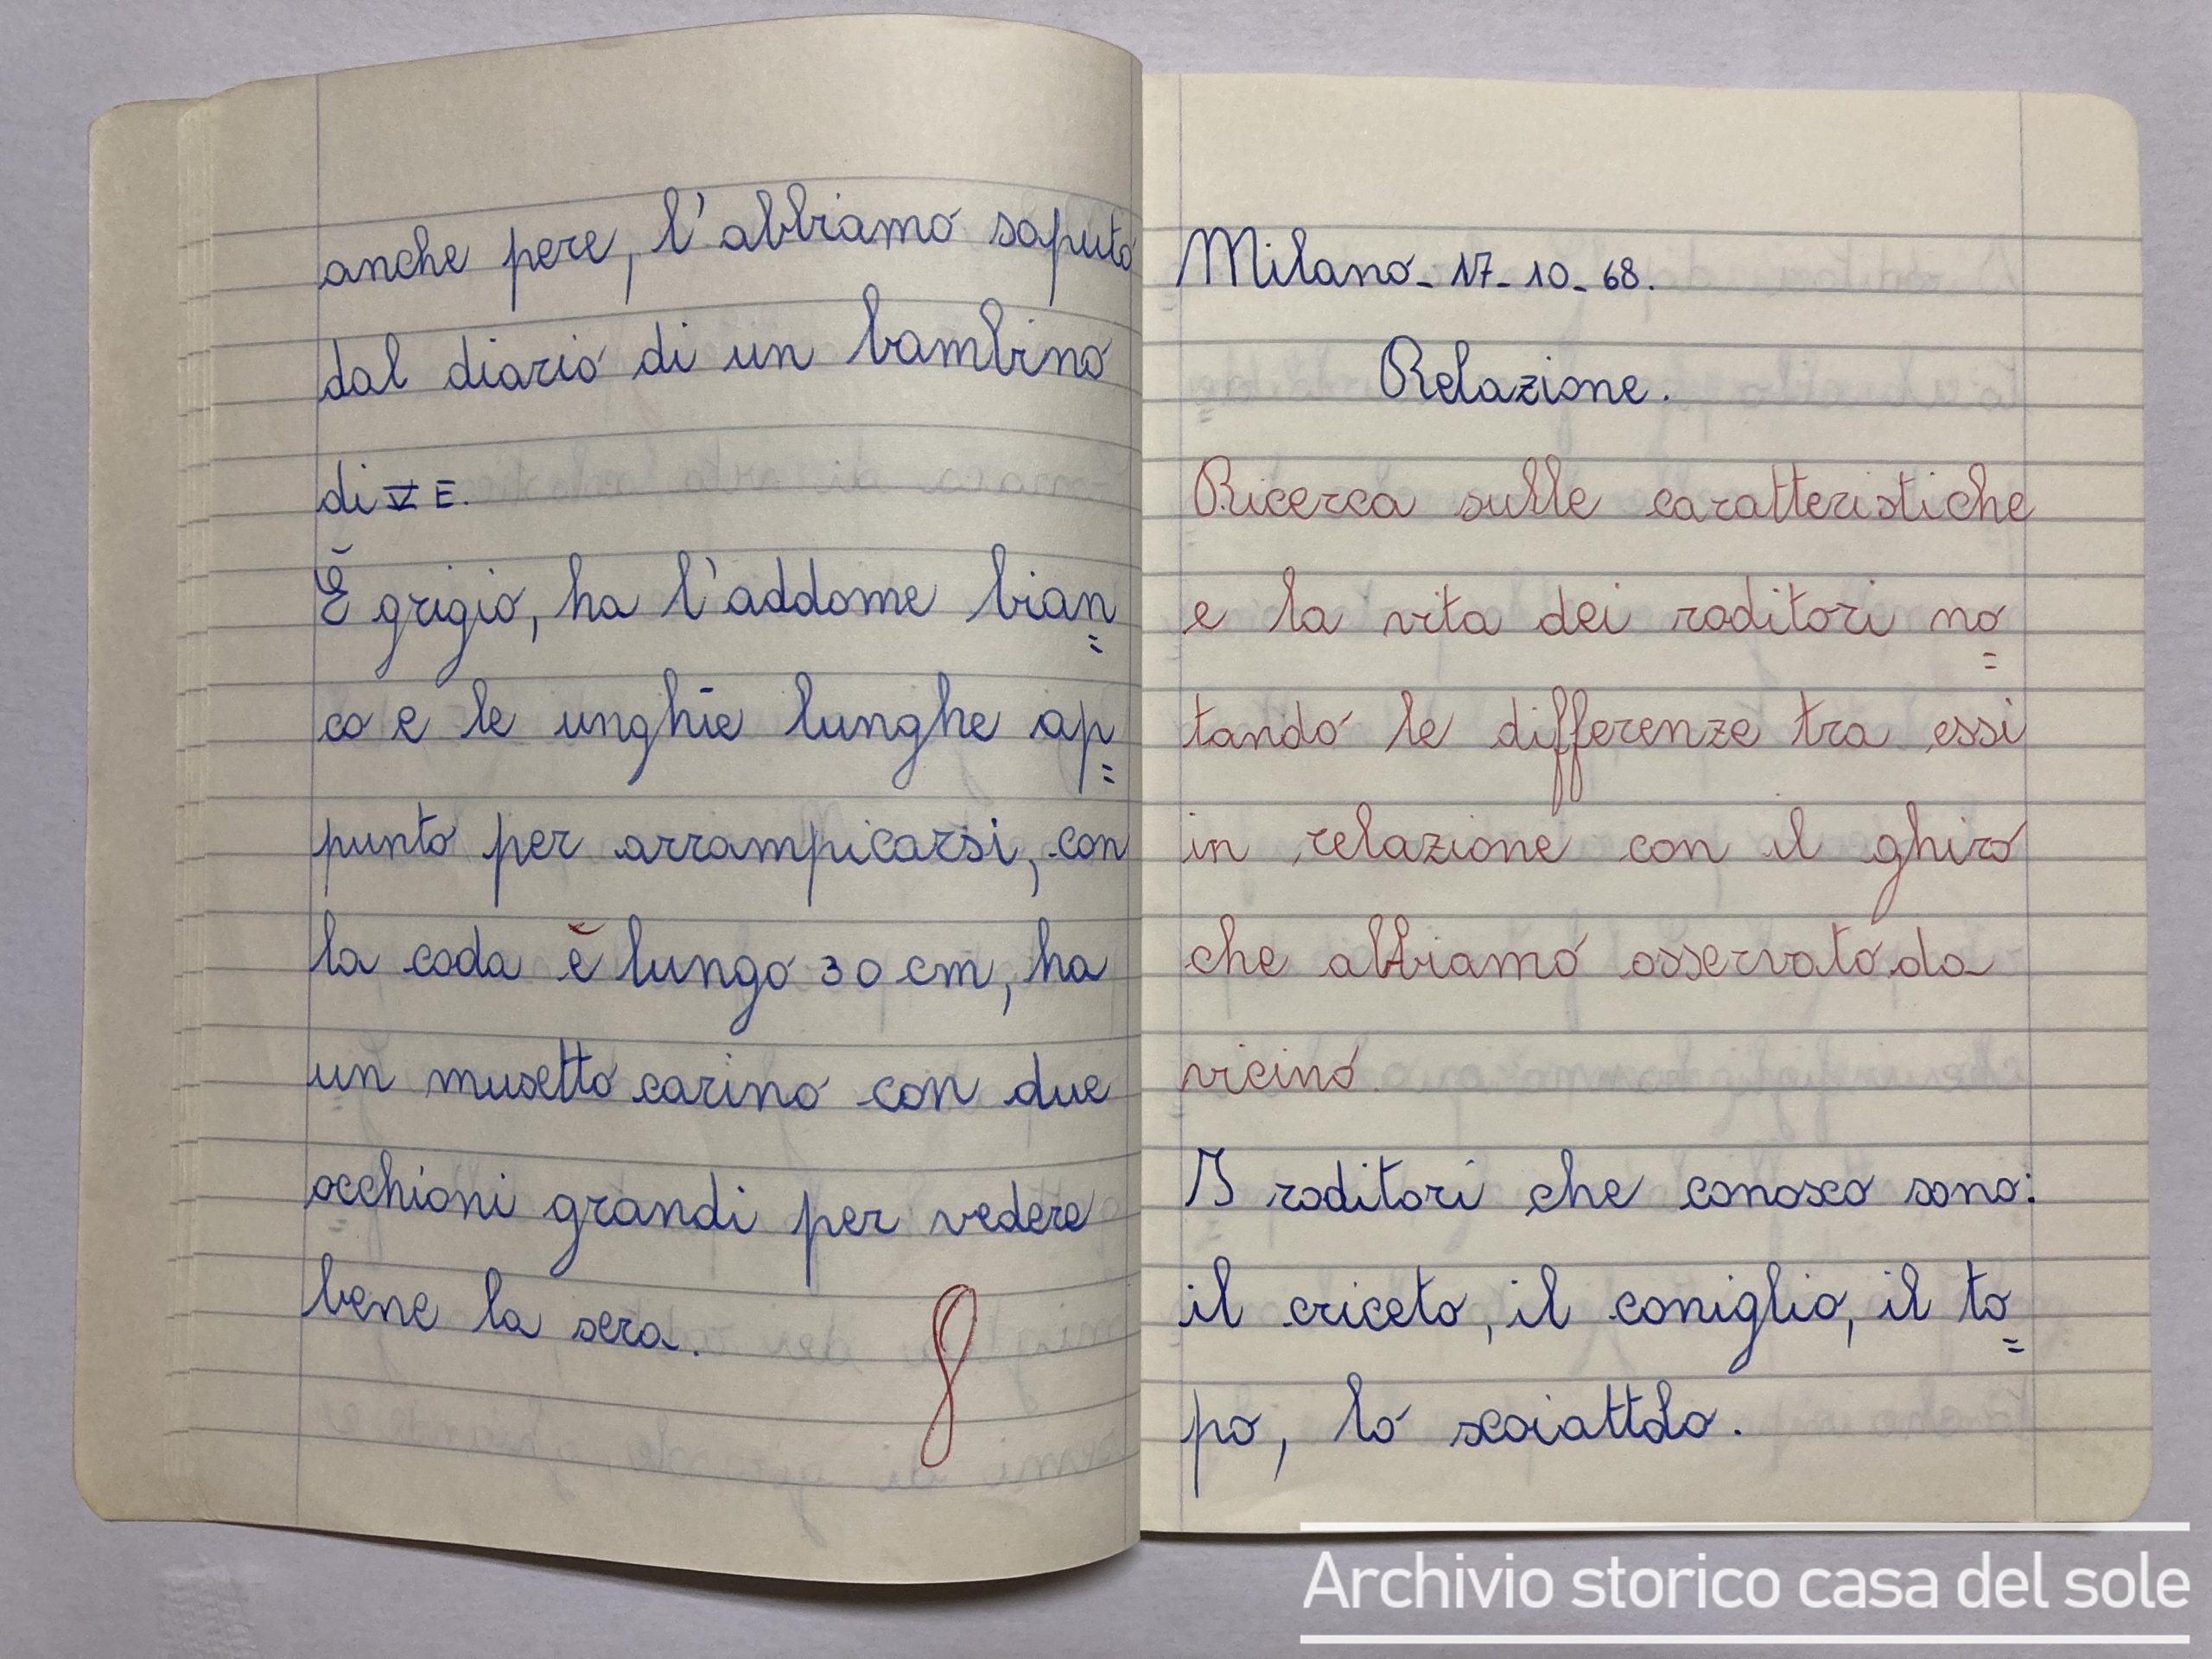 anche pere, l'abbiamo saputo
dal diario di un bambino
di V E.
È grigio, ha l'addome bian=
co e le unghie lunghe ap=
punto per arrampicarsi, con
la coda è lungo 30 cm, ha
un musetto carino con due
occhioni grandi per vedere
bene la sera.
8
Milano - 17 - 10 - 68.
Relazione.
Ricerca sulle caratteristiche
e la vita dei roditori no=
tando le differenze tra essi
in relazione con il ghiro
che abbiamo osservato da
vicino
I roditori che conosco sono:
il criceto, il coniglio, il to=
po, lo scoiattolo.
Archivio storico casa del sole